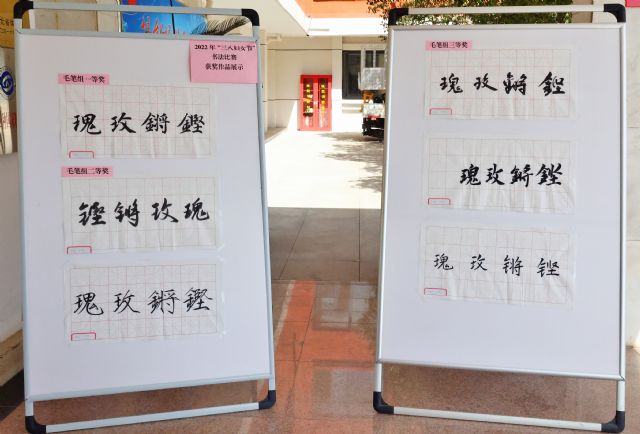 2022年“三八妇女节”
书法比赛
获奖作品展示
毛笔组一等奖
瑰玫鏘鏗
毛笔组二等奖
铿锵玫瑰
瑰玫鏘鏗
毛笔组三等奖
瑰玫鏘鏗
瑰玫鏘鏗
瑰玫锵铿